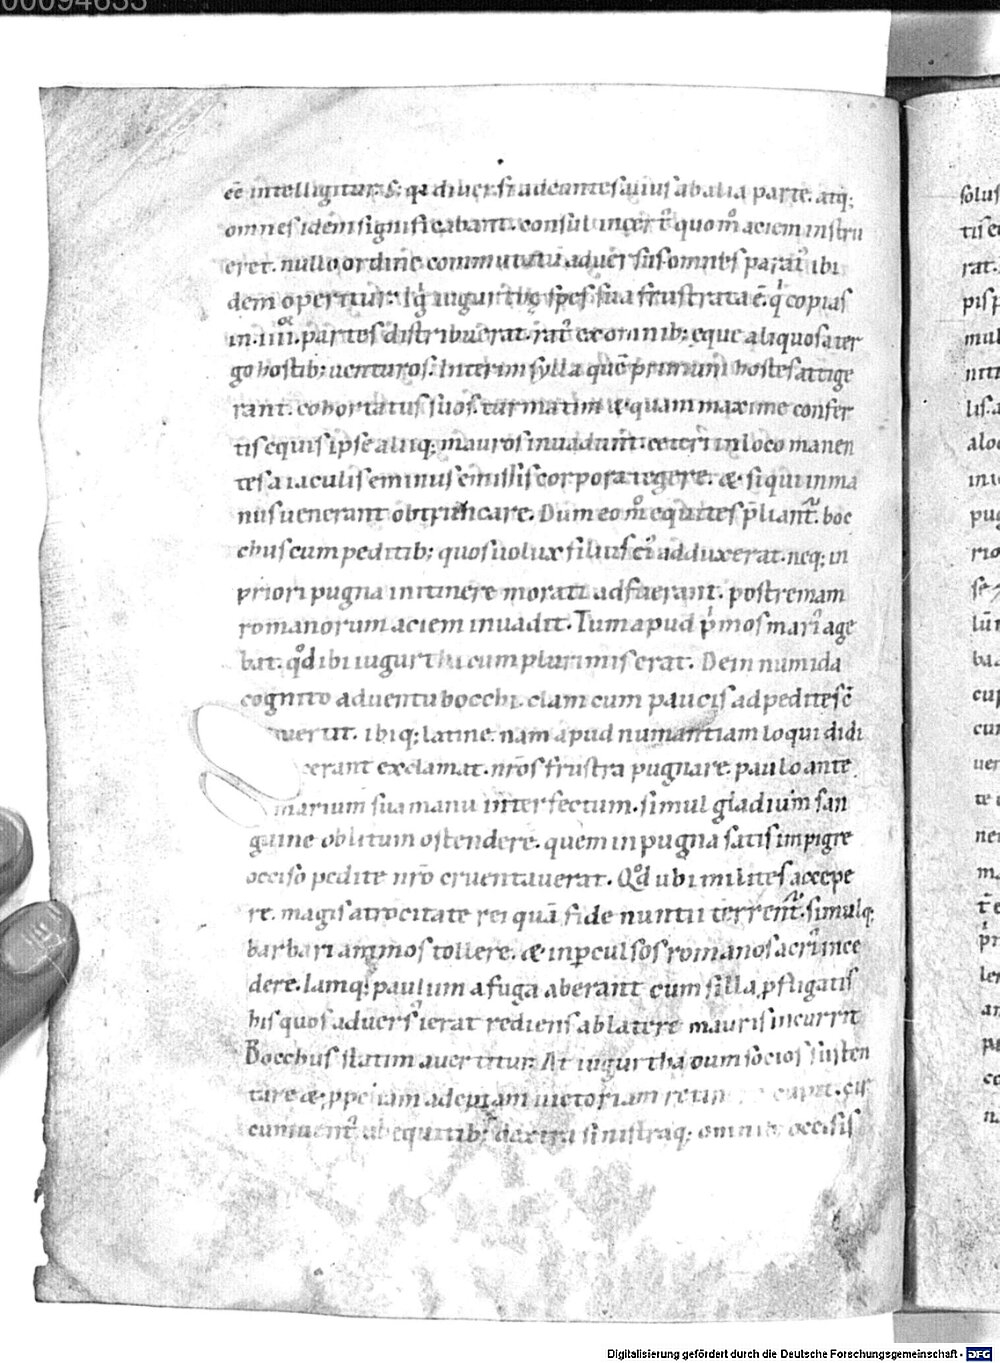 00094633
eē intelligitur. S; qi diuersi adeuntes. alius ab alia parte. atq;
omnes idem significabant. consul incert̄ quom̊ aciem instru
eret. nullo ordine commutatu aduersus omnes parat̄ ibi
dem operitur. Ig̊ iugurthę spes sua frustrata ē. q̍ copias
in .iiii. partes distribuerat. rat̄ ex omnib; eque aliquos a ter
go hostib; uenturos. Interim sylla quē primum hostes attige
rant. cohortatus suos. turmatim & quam maxime confer
tis equis ipse aliiq; mauros inuadunt. ceteri in loco manen
tes a iaculis eminus emissis corpora tegere. & siqui inma
nus uenerant obtruncare. Dum eo m̊ equites p̄liant̄. boc
chus cum peditib; quos uolux filius ei̓ adduxerat. neq; in
priori pugna in itinere morati adfuerant. postremam
romanorum aciem inuadit. Tum apud p̍mos mari̓ age
bat. qd̊ ibi iugurtha cum plurimis erat. Dein numida
cognito aduentu bocchi. clam cum paucis ad pedites c̄
uertit. ibiq; latine. nam apud numantiam loqui didi
cerant exclamat. nr̄os frustra pugnare. paulo ante
marium sua manu interfectum. simul gladium san
guine oblitum ostendere. quem in pugna satis impigre
occiso pedite nr̄o cruentauerat. Qd̊ ubi milites accepe
re. magis atrocitate rei quā fide nuntii terrent̄. simulq;
barbari animos tollere. & inꝑculsos romanos acri̓ ince
dere. Iamq; paulum a fuga aberant cum silla ꝓfligatis
his quos aduers̓ ierat rediens ab latere mauris incurrit
Bocchus statim auertitur. At iugurtha dum socios susten
tare & ꝓpe iam adeptam uictoriam retin cupit. cir
cumuent̄ ab equitib; dextra sinistraq; omnib; occisis
Digitalisierung gefördert durch die Deutsche Forschungsgemeinschaft - DFG